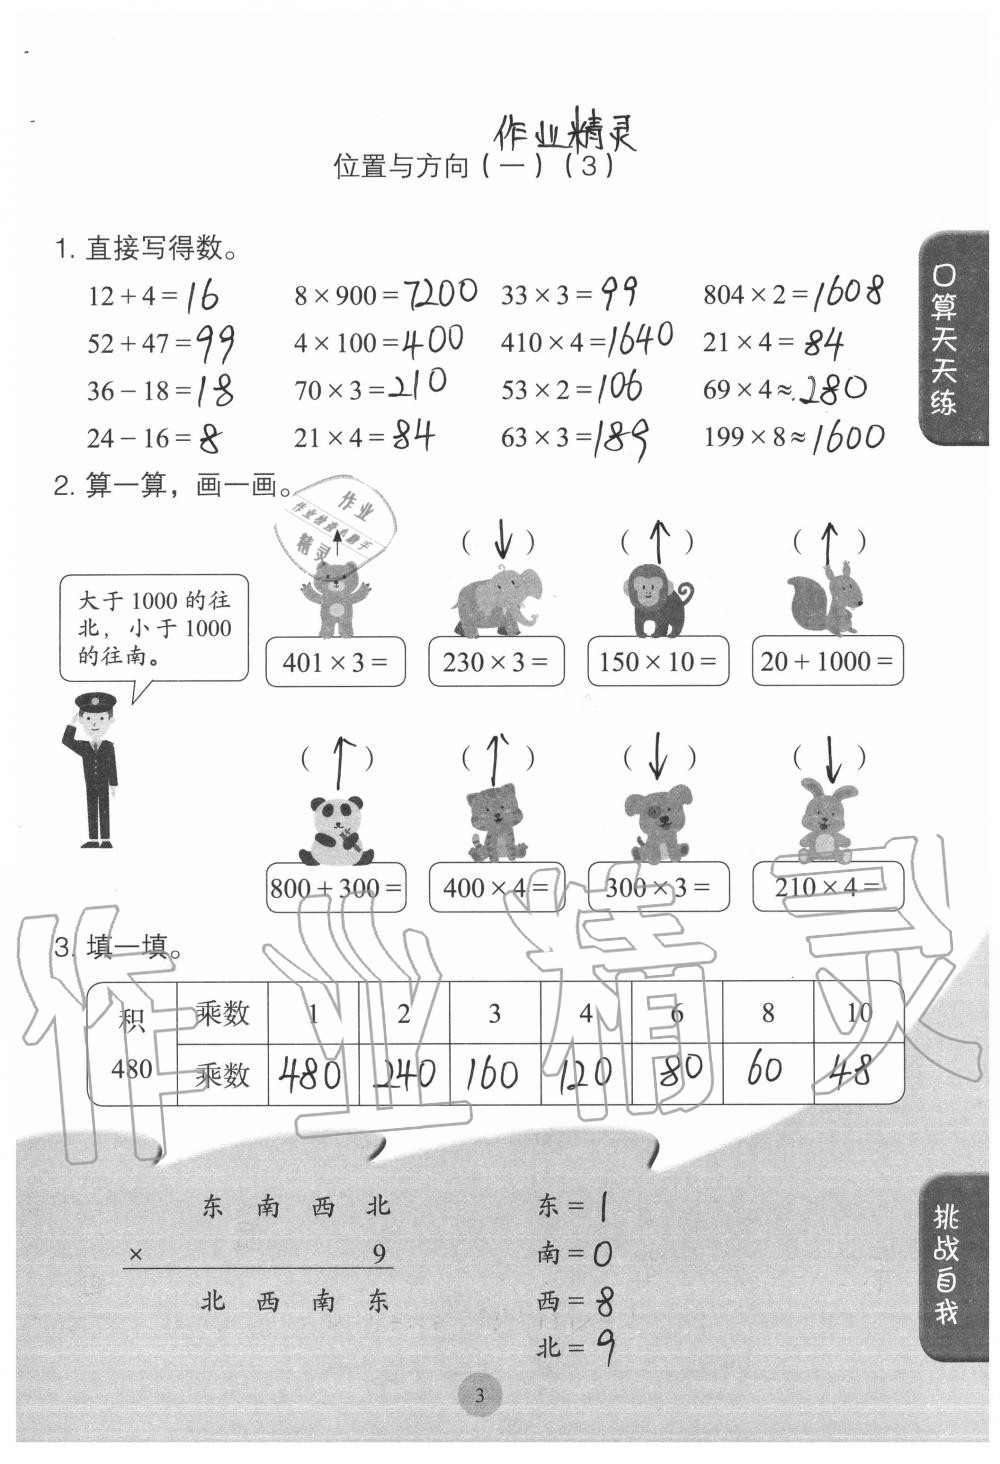 作业精灵
位置与方向(一)(3)
口算天天练
1. 直接写得数。
12+4=16 8×900=7200 33×3=99 804×2=1608
52+47=99 4×100=400 410×4=1640 21×4=84
36-18=18 70×3=210 53×2=106 69×4≈280
24-16=8 21×4=84 63×3=189 199×8≈1600
2. 算一算，画一画。
作业
作业检查小助手
精灵
(↓) (↑) (↑)
大于1000的往
北，小于1000
的往南。
401×3= 230×3= 150×10= 20+1000=
(↑) (↑) (↓) (↓)
800+300= 400×4= 300×3= 210×4=
作业精灵
3. 填一填。
积 480
乘数 1 2 3 4 6 8 10
乘数 480 240 160 120 80 60 48
挑战自我
东 南 西 北
× 9
北 西 南 东
东=1
南=0
西=8
北=9
3